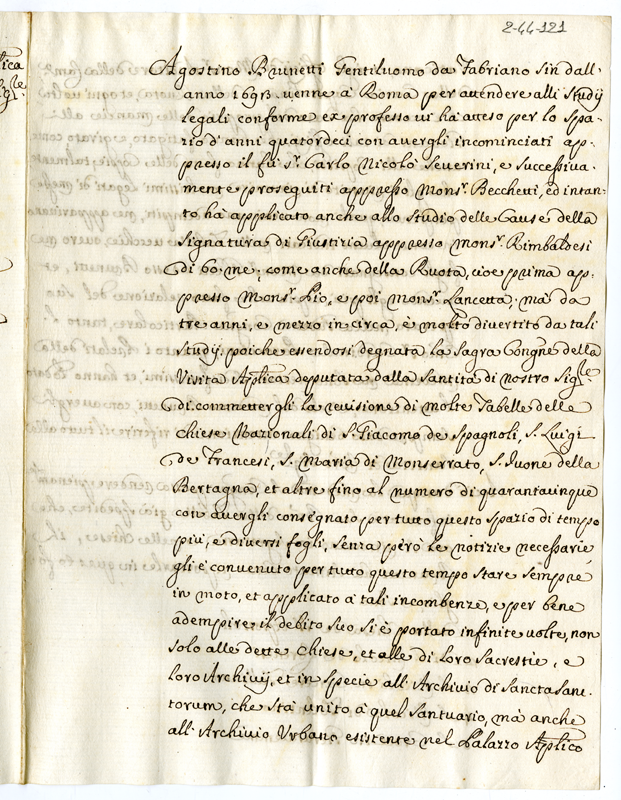 2-44-121
Agostino Brunetti Gentiluomo da Fabriano sin dall'
anno 1693. uenne à Roma per attendere alli Studÿ
legali conforme ex professo ui hà atteso per lo spa-
zio d'anni quatordeci con auergli incominciati ap-
presso il fù S.r Carlo Nicolò Seuerini, e successiua-
mente proseguiti appresso Mons.r Becchetti, ed intan-
to hà applicato anche allo Studio delle Cause della
Signatura di Giustizia appresso Mons.r Rimbaldesi
di bo: me:, come anche della Ruota, cioe prima ap-
presso Mons.r Lio, e poi Mons.r Lancetta; mà da
tre anni, e mezzo in circa, è molto diuertito da tali
Studÿ, poiche essendosi degnata la Sagra Congne della
Visita Aplica deputata dalla Santità di nostro Sig.re
di commettergli la reuisione di molte Tabelle delle
Chiese Nazionali di S. Giacomo de Spagnoli, S. Luigi
de Francesi, S. Maria di Monserrato, S. Iuone della
Bertagna, et altre fino al numero di quarantacinque
con auergli consegnato per tutto questo spazio di tempo
più, e diuersi fogli, senza però le notizie necessarie,
gli è conuenuto per tutto questo tempo stare sempre
in moto, et applicato à tali incombenze, e per bene
adempire il debito suo si è portato infinite uolte, non
solo alle dette Chiese, et alle di loro Sacrestie, e
loro Archiuÿ, et in specie all'Archiuio di Sancta San-
torum, che stà unito à quel Santuario, mà anche
all'Archiuio Vrbano esistente nel Palazzo Aplico